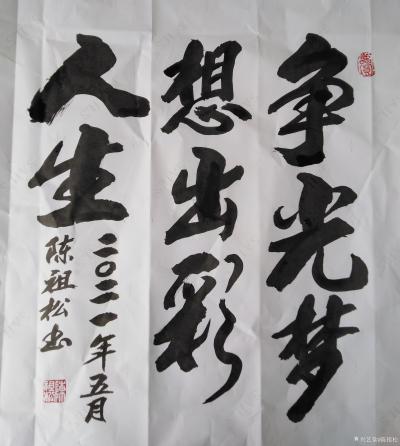 争光梦
想出彩
人生
二〇二一年五月
陈祖松书
兴艺堂@陈祖松